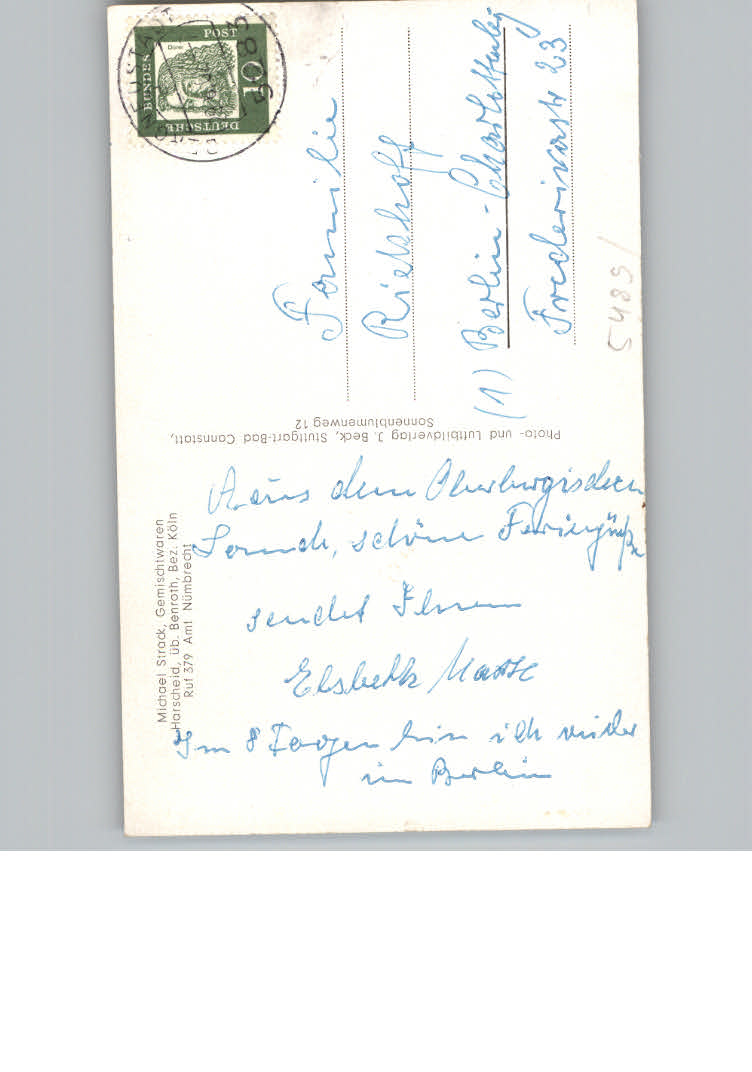 Aus dem Oberbergischen
Lande, schöne Feriengrüße
sendet Ihnen
Elsbeth
Im 8 Tagen bin ich wieder
in Berlin
Familie
Rietshoff
(1) Berlin-Charlottenbg
Fredericiastr 23
5489/
Michael Strack, Gemischtwaren
Harscheid, üb. Benroth, Bez. Köln
Ruf 379 Amt Nümbrecht
Photo- und Luftbildverlag J. Beck, Stuttgart-Bad Cannstatt,
Sonnenblumenweg 12
DEUTSCHE
BUNDES
POST
10
Dürer
5283